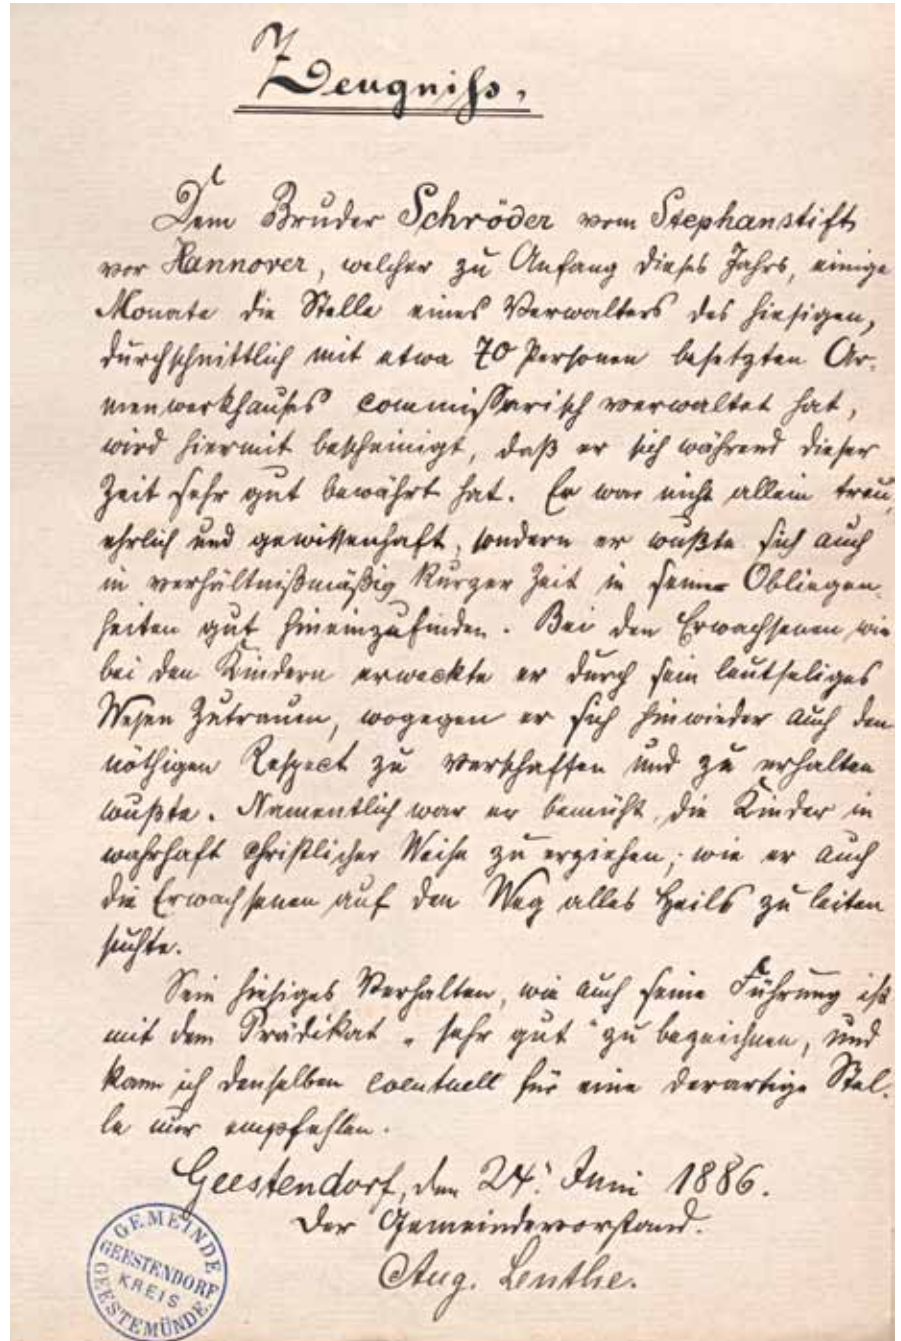 Zeugniß.
Dem Bruder Schröder vom Stephanstift
vor Hannover, welcher zu Anfang dieses Jahrs, einige
Monate die Stelle eines Verwalters des hiesigen,
durchschnittlich mit etwa 70 Personen besetzten Ar-
menwerkhauses commissarisch verwaltet hat,
wird hiermit bescheinigt, daß er sich während dieser
Zeit sehr gut bewährt hat. Er war nicht allein treu,
ehrlich und gewissenhaft, sondern er wußte sich auch
in verhältnißmäßig kurzer Zeit in seine Obliegen-
heiten gut hineinzufinden. Bei den Erwachsenen wie
bei den Kindern erweckte er durch sein leutseliges
Wesen Zutrauen, wogegen er sich hinwieder auch den
nöthigen Respect zu verschaffen und zu erhalten
wußte. Namentlich war er bemüht, die Kinder in
wahrhaft christlicher Weise zu erziehen; wie er auch
die Erwachsenen auf den Weg alles Heils zu leiten
suchte.
Sein hiesiges Verhalten, wie auch seine Führung ist
mit dem Prädikat „sehr gut“ zu bezeichnen, und
kann ich denselben eventuell für eine derartige Stel-
le nur empfehlen.
Geestendorf, den 24. Juni 1886.
Der Gemeindevorstand.
Aug. Lenthe.
GEMEINDE
GEESTENDORF
KREIS
GEESTEMÜNDE.